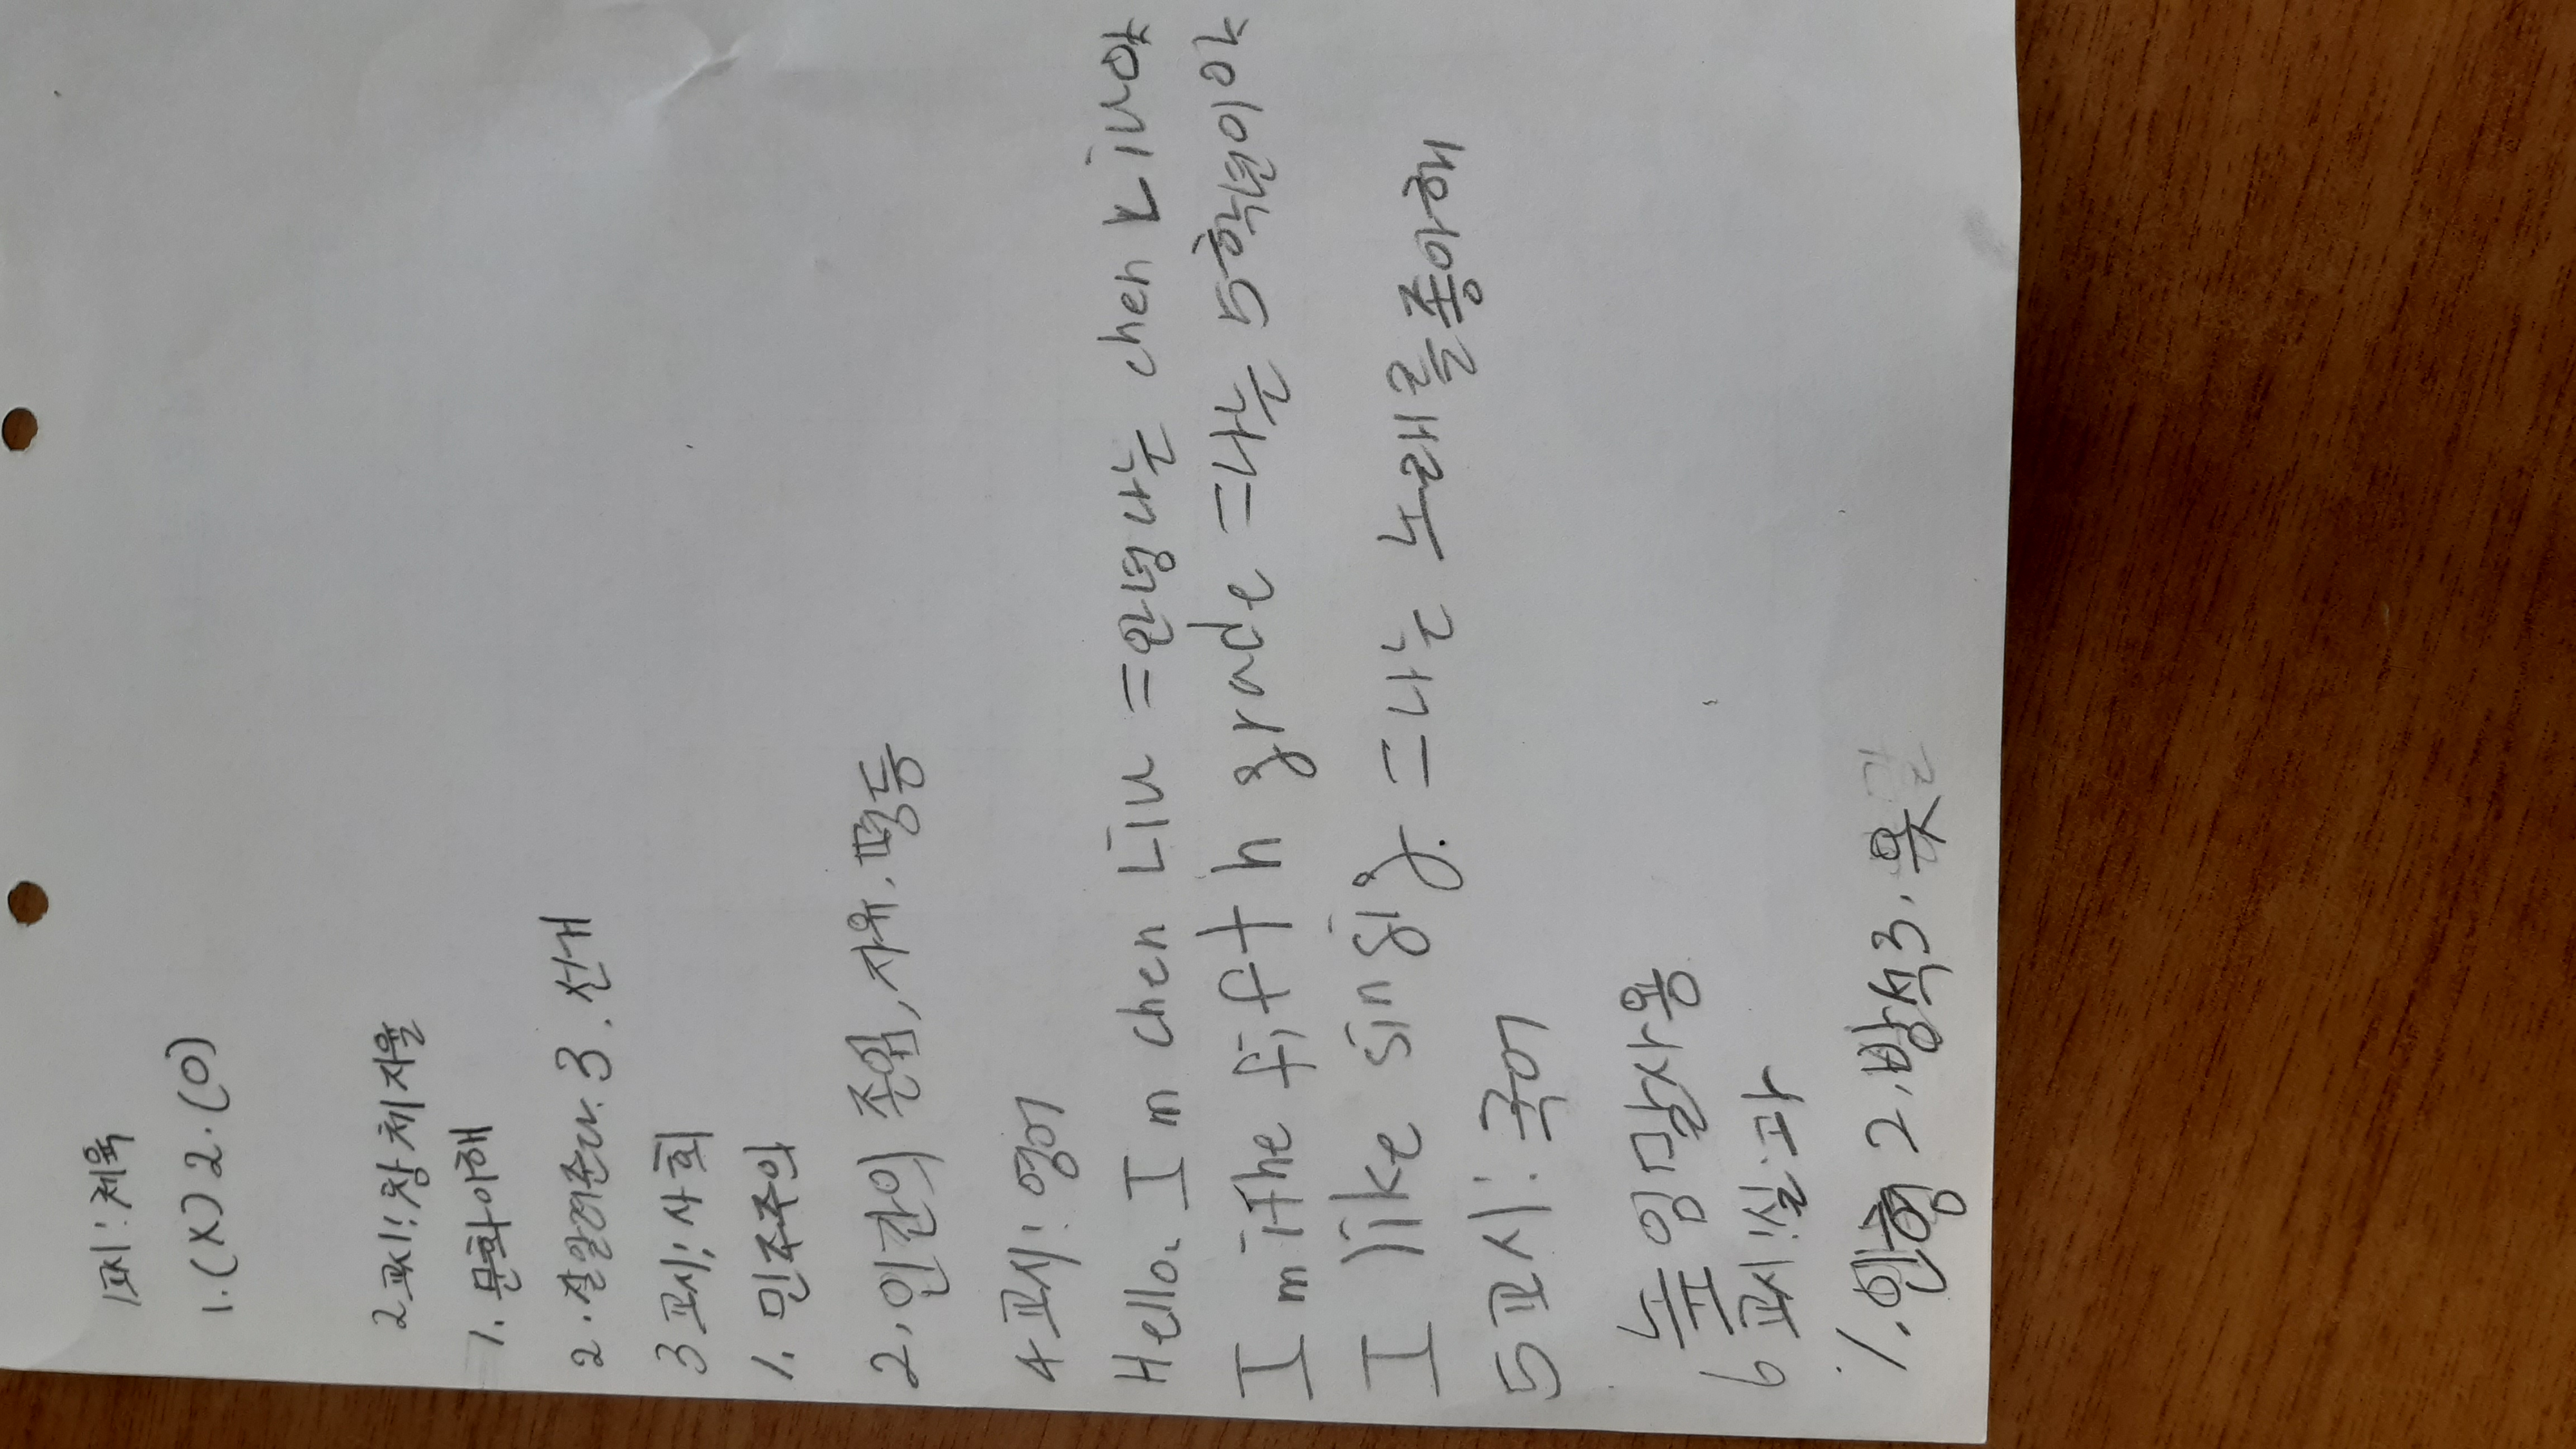 1교시: 체육
1. (X) 2. (O)
2교시: 창체자율
1. 문화이해
2. 잘알려준다. 3. 선게
3교시: 사회
1. 민주주의
2. 인간의 존엄, 자유, 평등
4교시: 영어
Hello. I m chen Liu = 안녕 나는 chen Liu야
I m iThe fifth grade = 나는 5학년이야
I like singig. = 나는 노래를좋아해
5교시: 국어
높임말사용
6교시: 실과
1. 인형 2. 방석 3. 옷